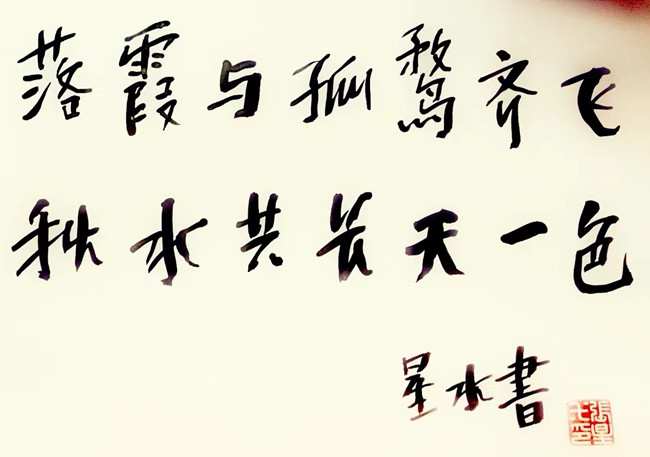 落霞与孤鹜齐飞
秋水共长天一色
星水書